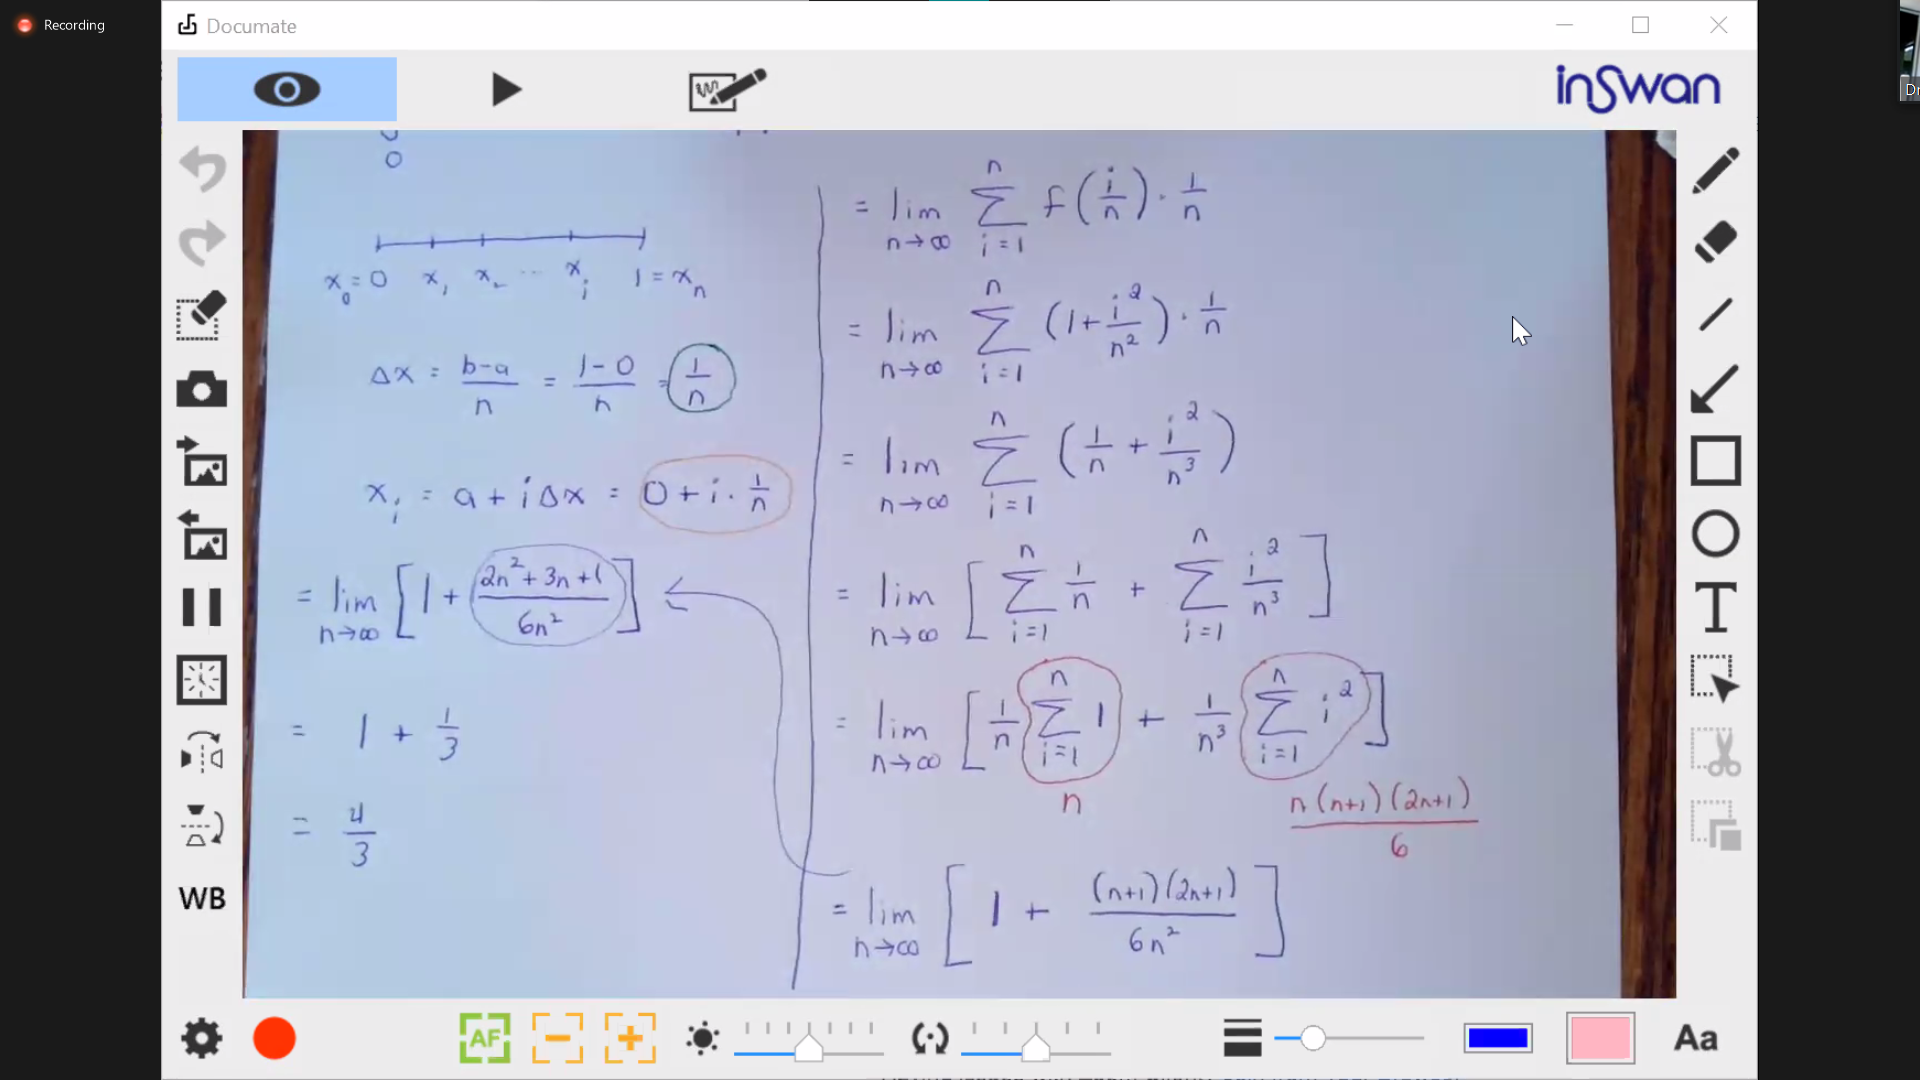 Recording
Documate
inSwan
Dr
0
x₀ = 0 x₁ x₂ ... x_i 1 = x_n
Δx = (b-a)/n = (1-0)/n = 1/n
x_i = a + iΔx = 0 + i · 1/n
= lim n→∞ [1 + (2n²+3n+1)/(6n²)]
= 1 + 1/3
= 4/3
= lim n→∞ Σ i=1 n f(i/n) · 1/n
= lim n→∞ Σ i=1 n (1 + i²/n²) · 1/n
= lim n→∞ Σ i=1 n (1/n + i²/n³)
= lim n→∞ [Σ i=1 n 1/n + Σ i=1 n i²/n³]
= lim n→∞ [1/n Σ i=1 n 1 + 1/n³ Σ i=1 n i²]
n n(n+1)(2n+1)/6
= lim n→∞ [1 + (n+1)(2n+1)/(6n²)]
T
WB
AF
Aa